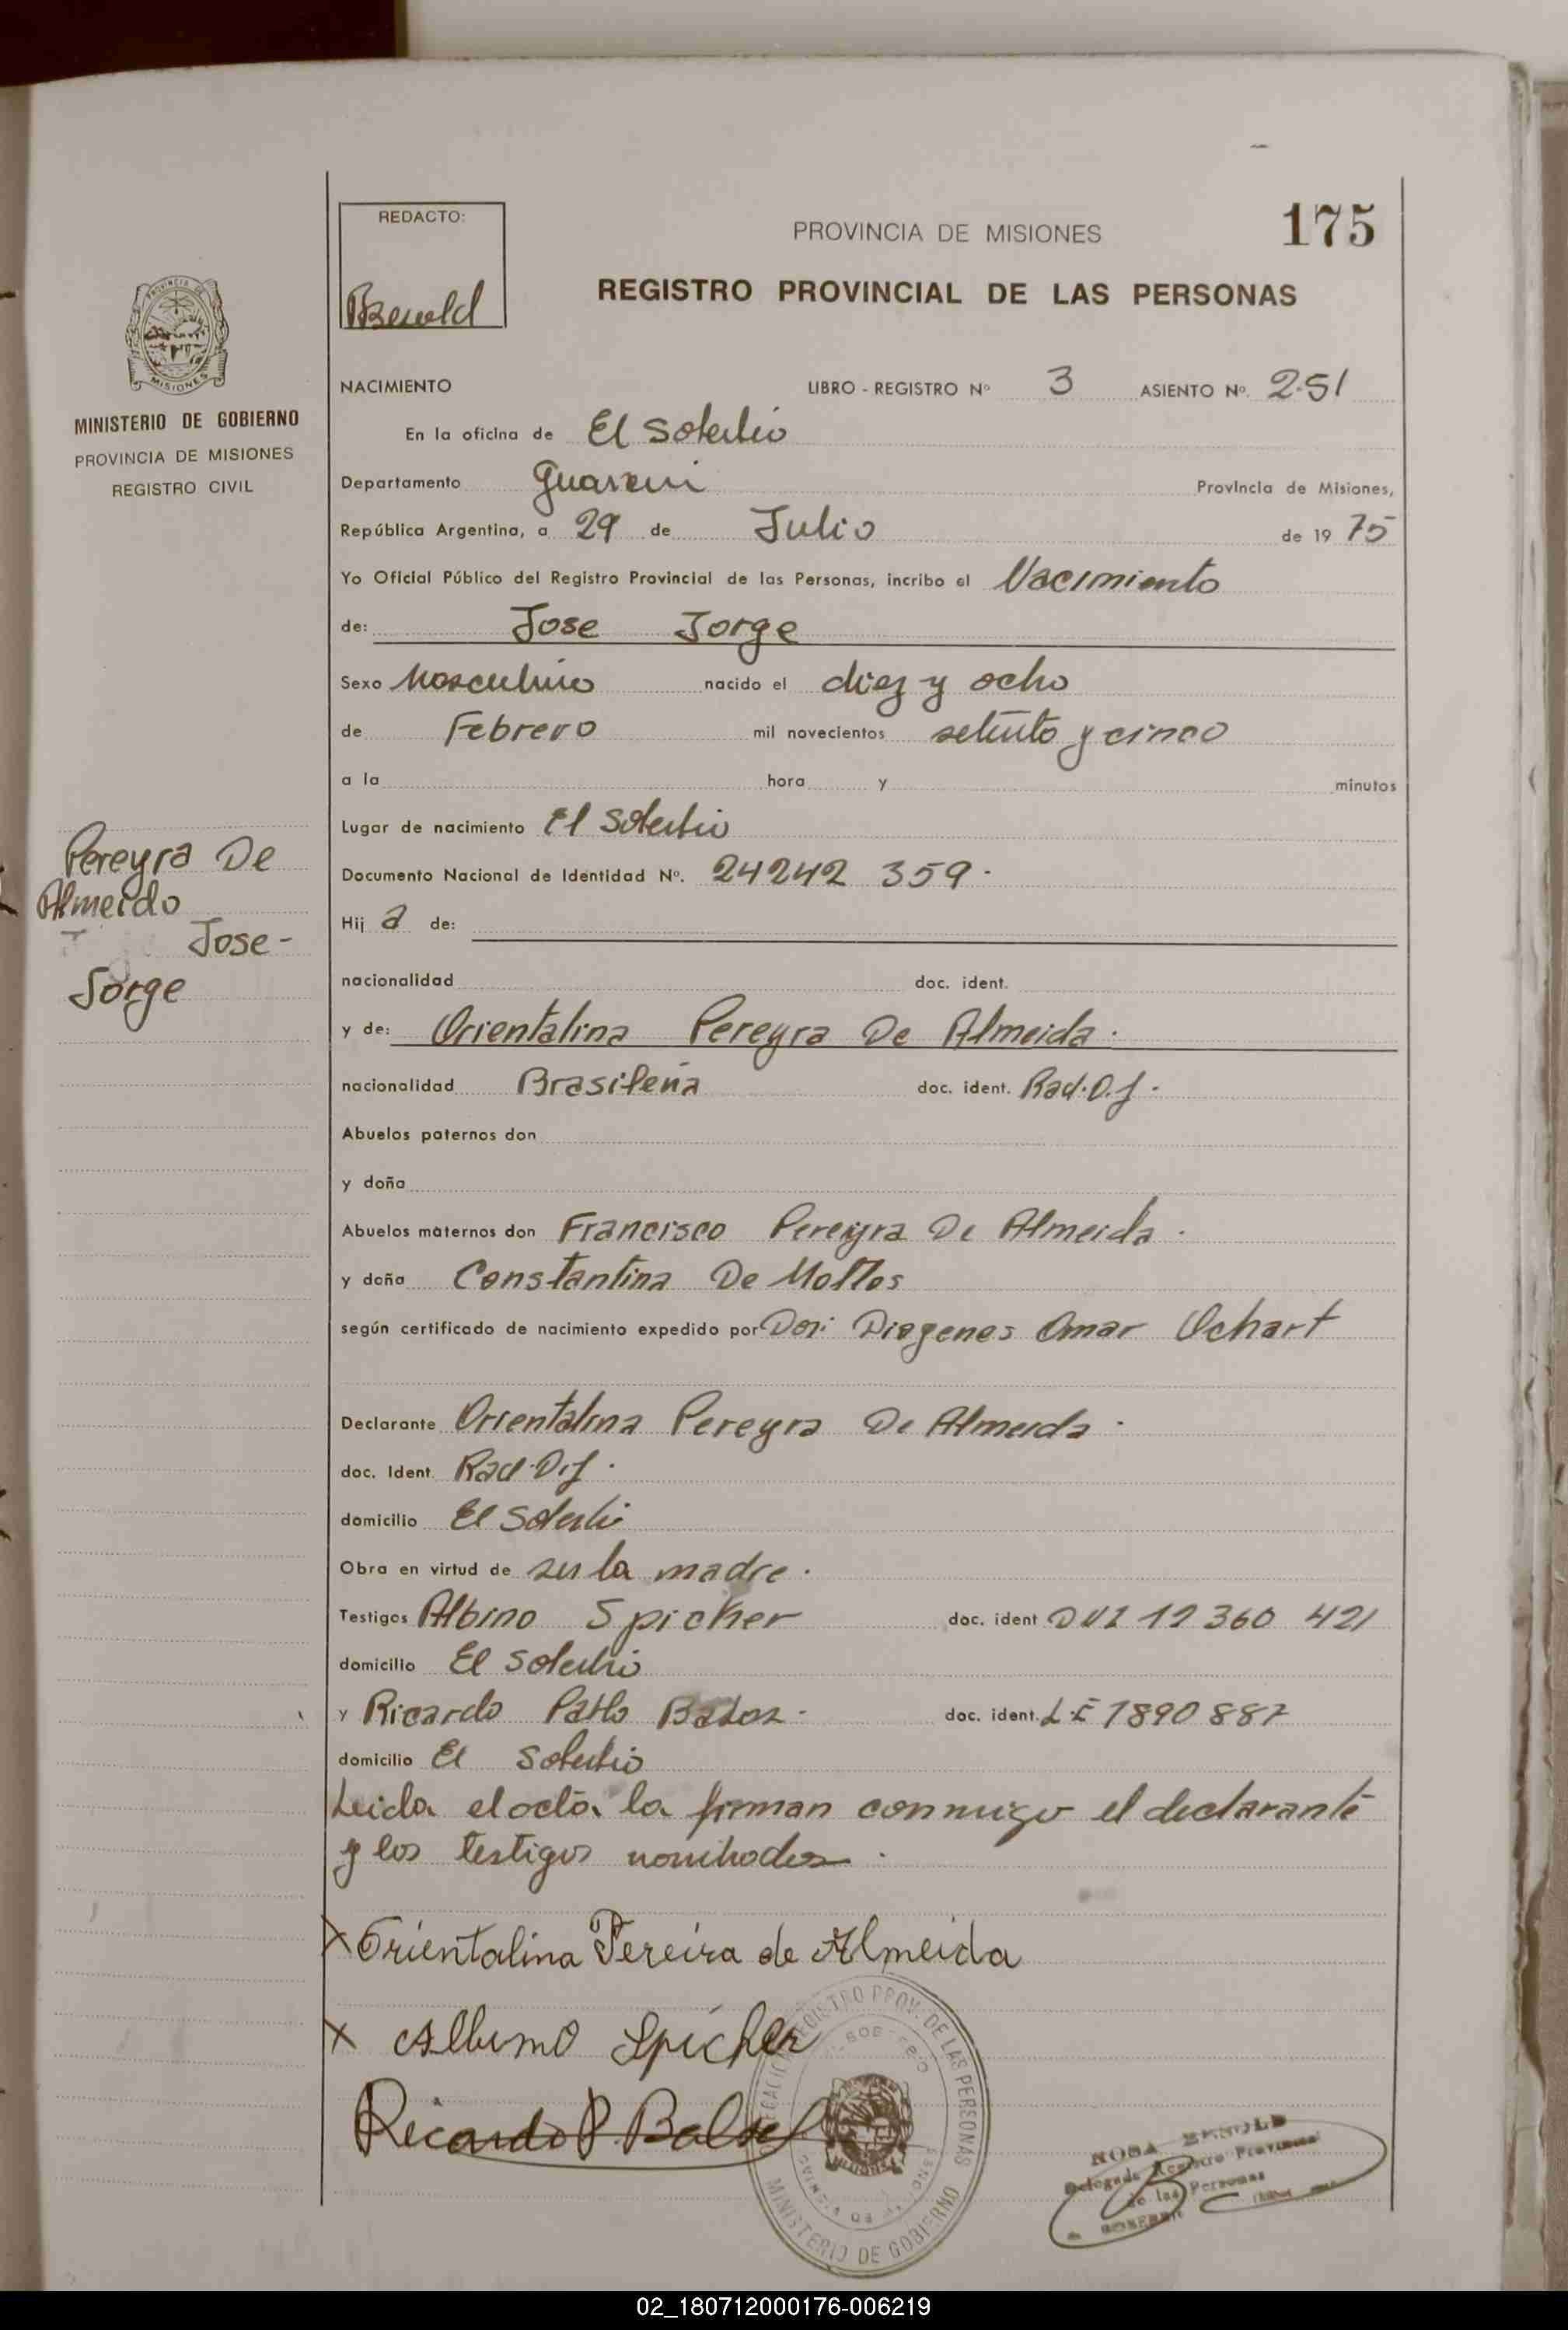 175
REDACTO:
PROVINCIA DE MISIONES
REGISTRO PROVINCIAL DE LAS PERSONAS
PROVINCIA DE
MISIONES
MINISTERIO DE GOBIERNO
PROVINCIA DE MISIONES
REGISTRO CIVIL
NACIMIENTO LIBRO - REGISTRO Nº 3 ASIENTO Nº. 251
En la oficina de El Soberbio
Departamento Guarani Provincia de Misiones,
República Argentina, a 29 de Julio de 19 75
Yo Oficial Público del Registro Provincial de las Personas, incribo el Nacimiento
de: Jose Jorge
Sexo Masculino nacido el diez y ocho
de Febrero mil novecientos setenta y cinco
a la hora y minutos
Lugar de nacimiento El Soberbio
Pereyra De
Almeida
Jose-
Jorge
Documento Nacional de Identidad Nº. 24242 359.
Hij a de:
nacionalidad doc. ident.
y de: Orientalina Pereyra De Almeida.
nacionalidad Brasileña doc. ident. Rad.
Abuelos paternos don
y doña
Abuelos maternos don Francisco Pereyra De Almeida.
y doña Constantina De Mattos
según certificado de nacimiento expedido por Diogenes Omar Ochart
Declarante Orientalina Pereyra De Almeida.
doc. Ident. Rad.
domicilio El Soberbio
Obra en virtud de ser la madre.
Testigos Albino Spicher doc. ident 12 360 421
domicilio El Soberbio
y Ricardo Pablo doc. ident. LE 7890887
domicilio El Soberbio
Leida el acta la firman conmigo el declarante
y los testigos nombrados.
X Orientalina Pereira de Almeida
X Albino Spicher
Ricardo P.
REGISTRO PROV. DE LAS PERSONAS
MINISTERIO DE GOBIERNO
ROSA
Delegada Registro Provincial
de las Personas
02_180712000176-006219